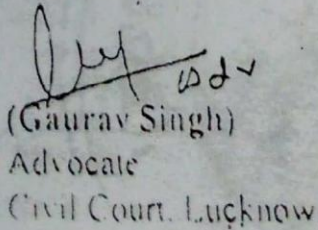 Adv
(Gaurav Singh)
Advocate
Civil Court, Lucknow